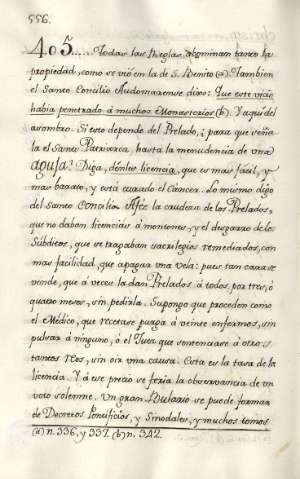 556.
405...... Todas las Reglas, abominan tanto la
propiedad, como se vió en la de S. Benito (a). Tambien
el Santo Concilio Audomarense dixo: Que este vicio
habia penetrado á muchos Monasterios (b). Y aqui del
asombro. Si esto depende del Prelado, ¿para que reñia
la el Santo Patriarca, hasta la menudencia de una
aguja? Diga, denles licencia, que es mas fácil, y
mas barato, y está curado el Cáncer. Lo mismo digo
del Santo Concilio. Afée la crudeza de los Prelados,
que no daban licencias á montones, y el desgarro de los
Súbditos, que se tragaban sacrilegios remediados, con
mas facilidad, que apagar una vela: pues tan cara se
vende, que á veces la dan Prelados á todos, por tres, ó
quatro meses, sin pedirla. Supongo que proceden como
el Médico, que recetase purga á veinte enfermos, sin
pulsar á ninguno, ó el Juez que sentenciase á otros
tantos reos, sin oir una causa. Esta es la tasa de la
licencia. Y á ese precio se feria la observancia de un
voto solemne. Un gran Bulario se puede formar
de Decretos Pontificios, y Sinodales, y muchos tomos
(a) n. 336, y 337. (b) n. 342.